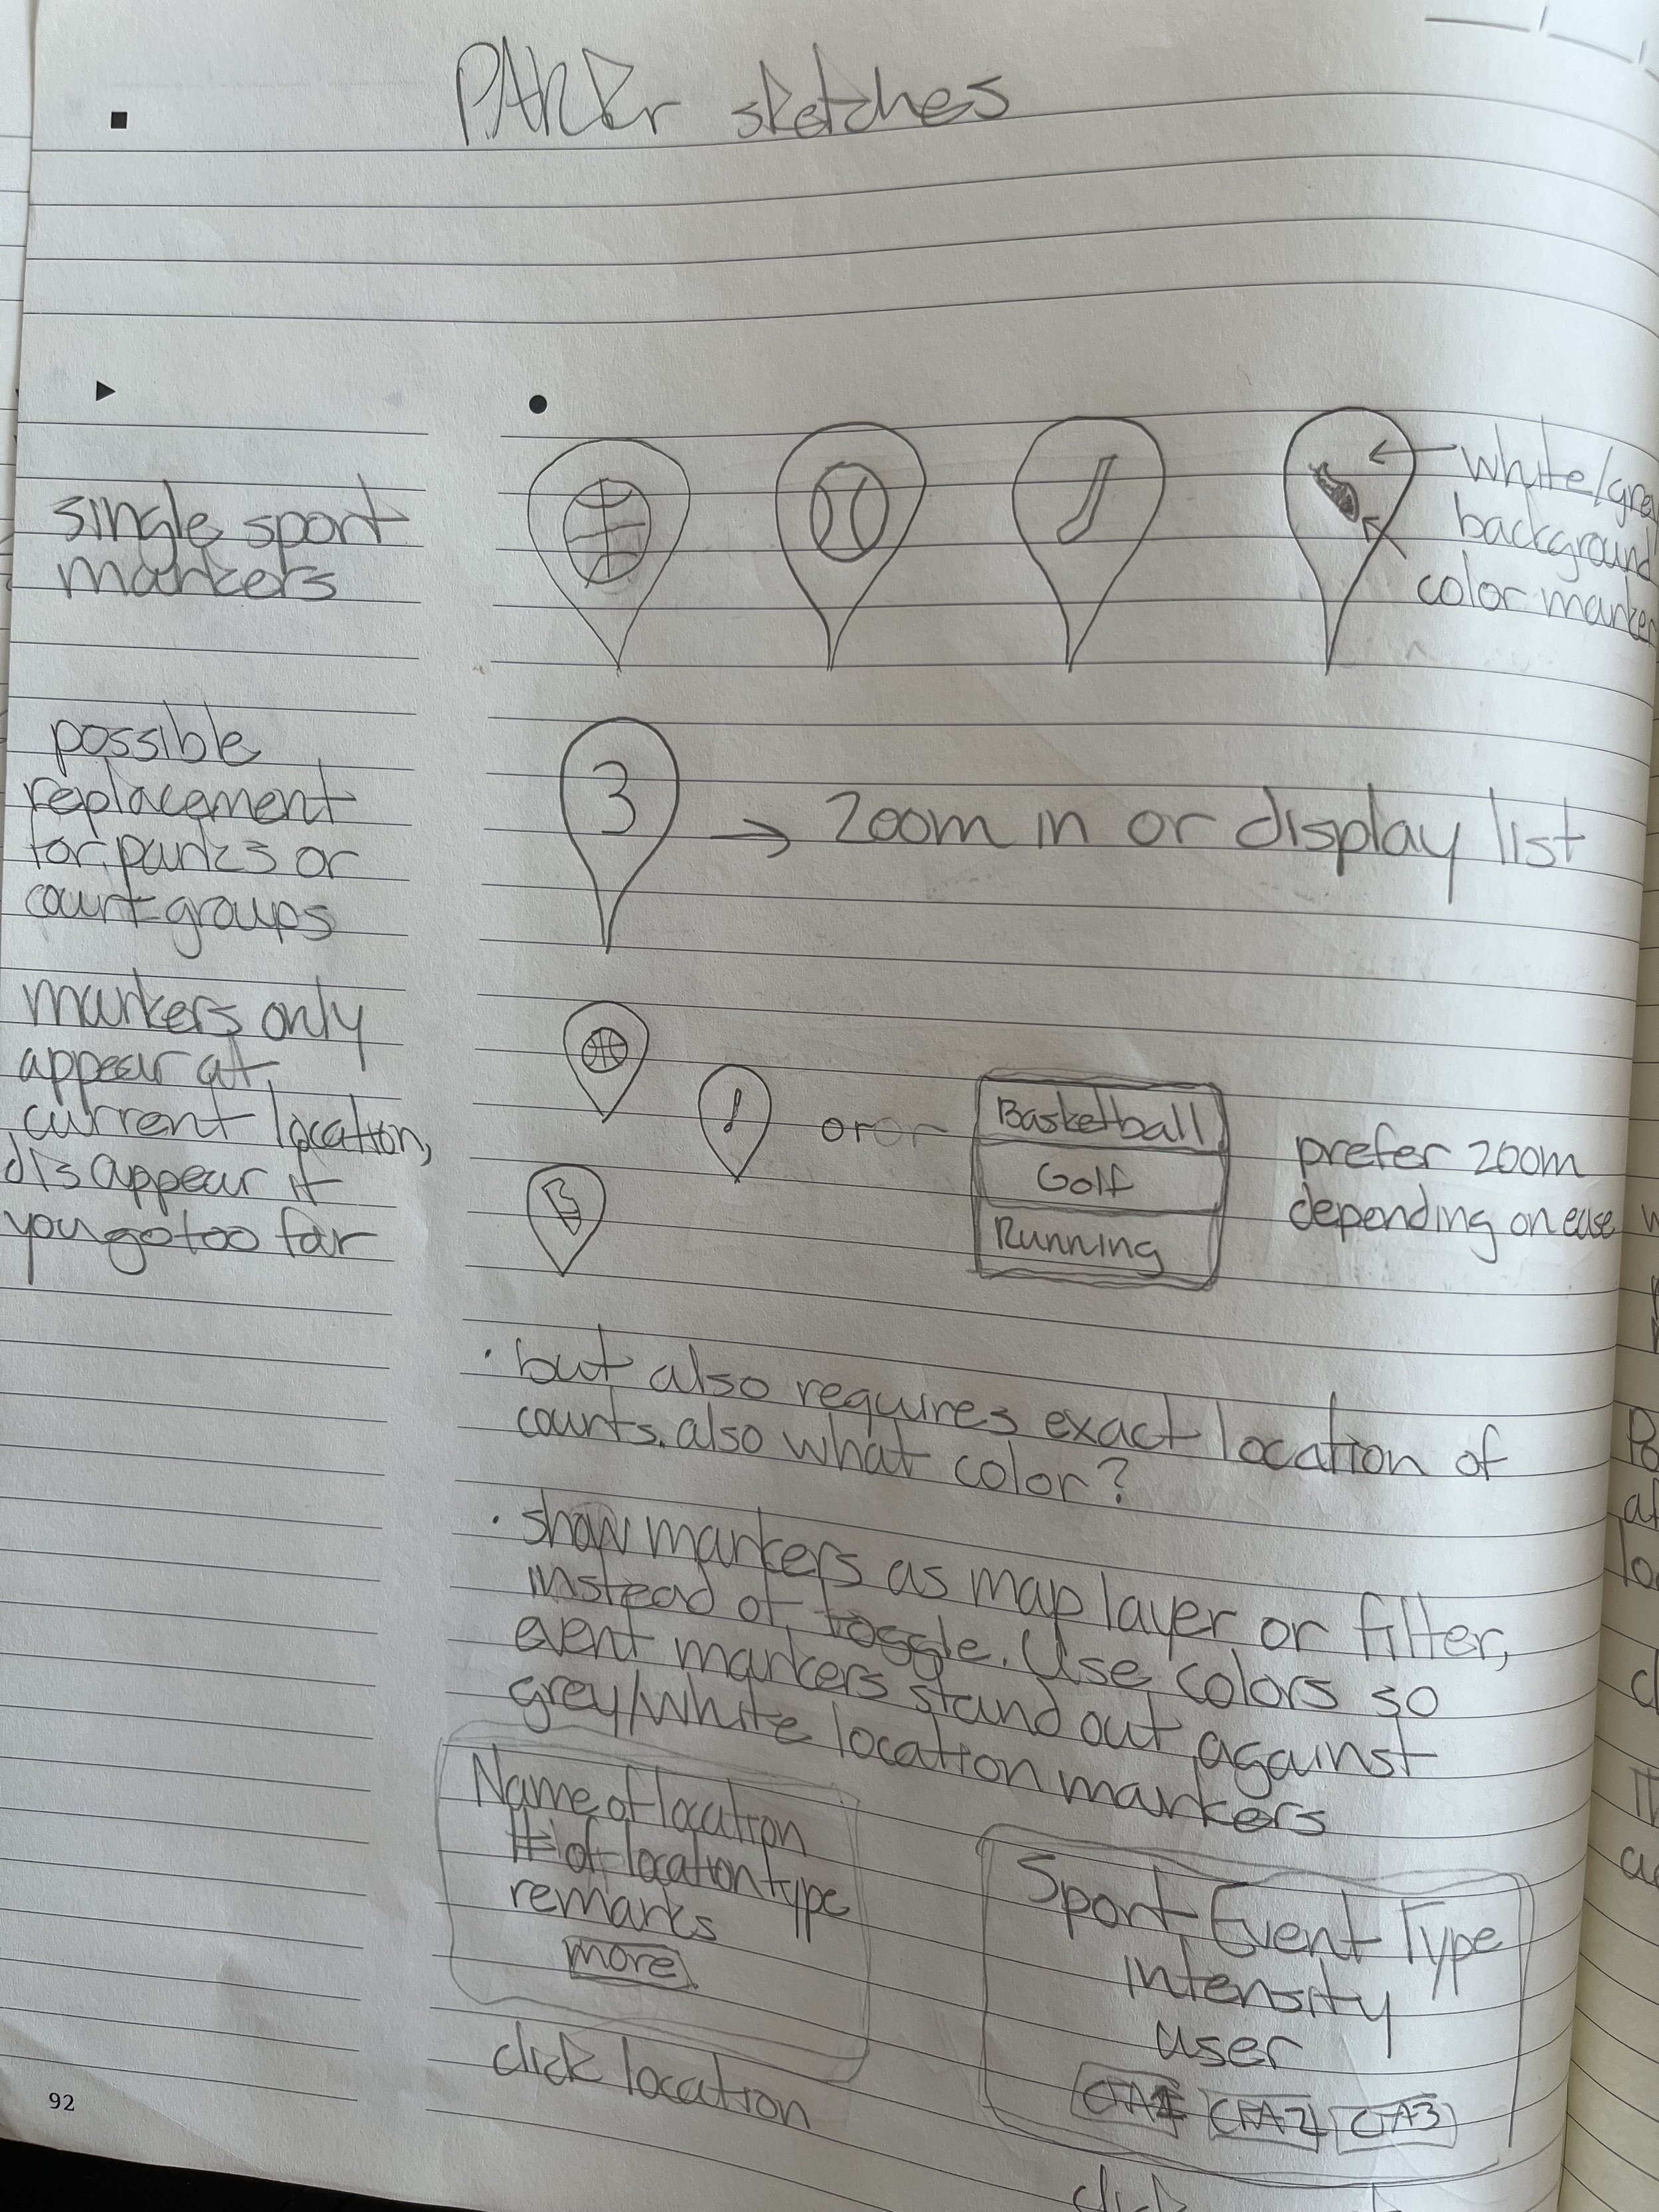 PARKr sketches
single sport
markers
white/grey
background
color marker
possible
replacement
for parks or
court groups
3
→ zoom in or display list
markers only
appear at
current location,
disappear if
you go too far
or or
Basketball
Golf
Running
prefer zoom
depending on ease
• but also requires exact location of
courts. also what color?
• show markers as map layer or filter,
instead of toggle. Use colors so
event markers stand out against
grey/white location markers
Name of location
# of location type
remarks
more
click location
Sport Event Type
intensity
user
CTA1 CTA2 CTA3
click
92